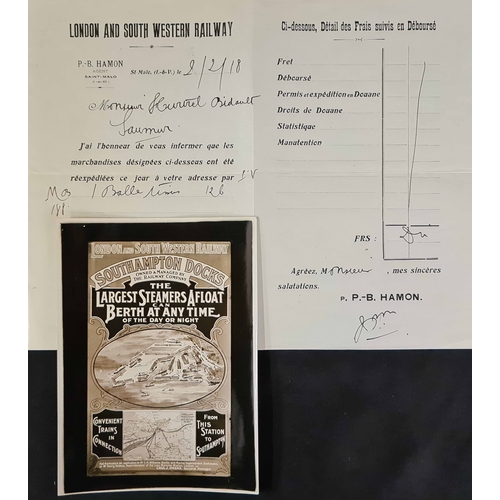 LONDON AND SOUTH WESTERN RAILWAY
P.-B. HAMON
AGENT
SAINT-MALO
St Malo, (I.-&-V.) le 2/2/18
Monsieur
Saumur
J'ai l'honneur de vous informer que les
marchandises désignées ci-dessous ont été
réexpédiées ce jour à votre adresse par
1 Balle 126
Ci-dessous, Détail des Frais suivis en Déboursé
Fret
Débours
Permis et expédition en Douane
Droits de Douane
Statistique
Manutention
FRS:
Agréez, Monsieur, mes sincères
salutations.
P. P.-B. HAMON.
LONDON AND SOUTH WESTERN RAILWAY
SOUTHAMPTON DOCKS
OWNED & MANAGED BY
THE RAILWAY COMPANY
THE
LARGEST STEAMERS AFLOAT
CAN
BERTH AT ANY TIME
OF THE DAY OR NIGHT
CONVENIENT
TRAINS
IN
CONNECTION
FROM
THIS
STATION
TO
SOUTHAMPTON